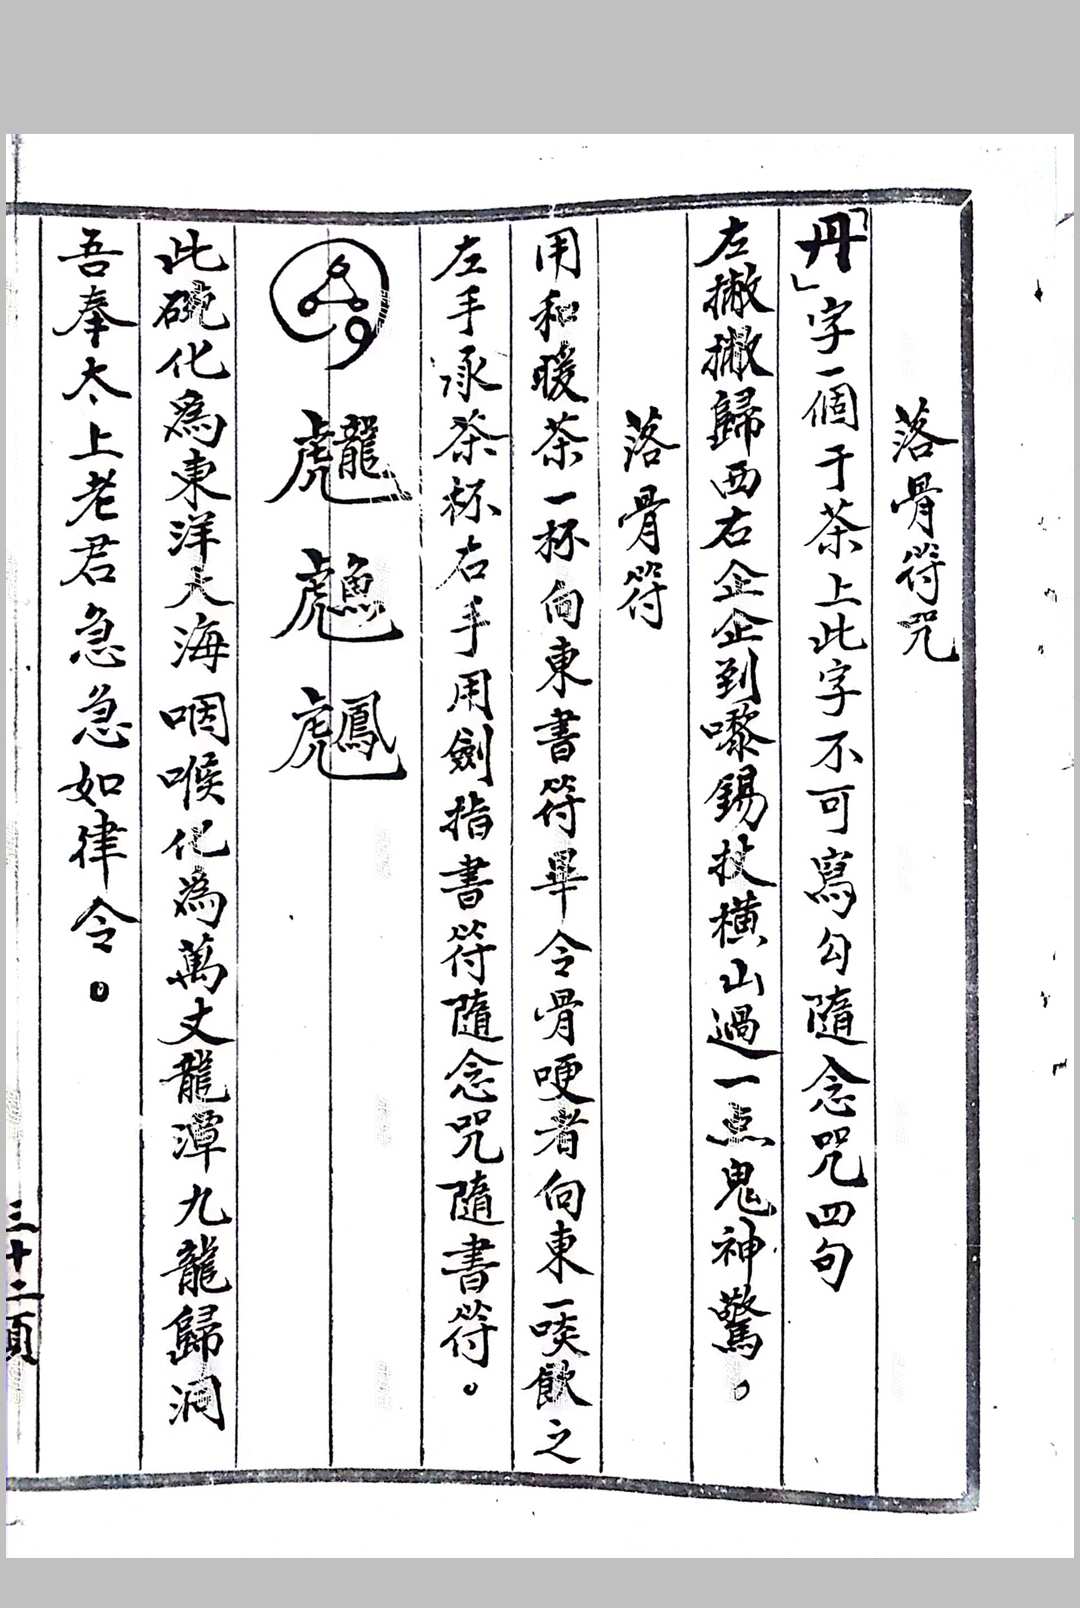 落骨符咒
「丹」字一個于茶上此字不可寫勾隨念咒四句
左撇撇歸西右企企到嚟錫杖橫山過一点鬼神驚。
落骨符
用和暖茶一杯向東書符畢令骨哽者向東一啖飲之
左手承茶杯右手用劍指書符隨念咒隨書符。
此碗化為東洋大海咽喉化為萬丈龍潭九龍歸洞
吾奉太上老君急急如律令。
三十二頁